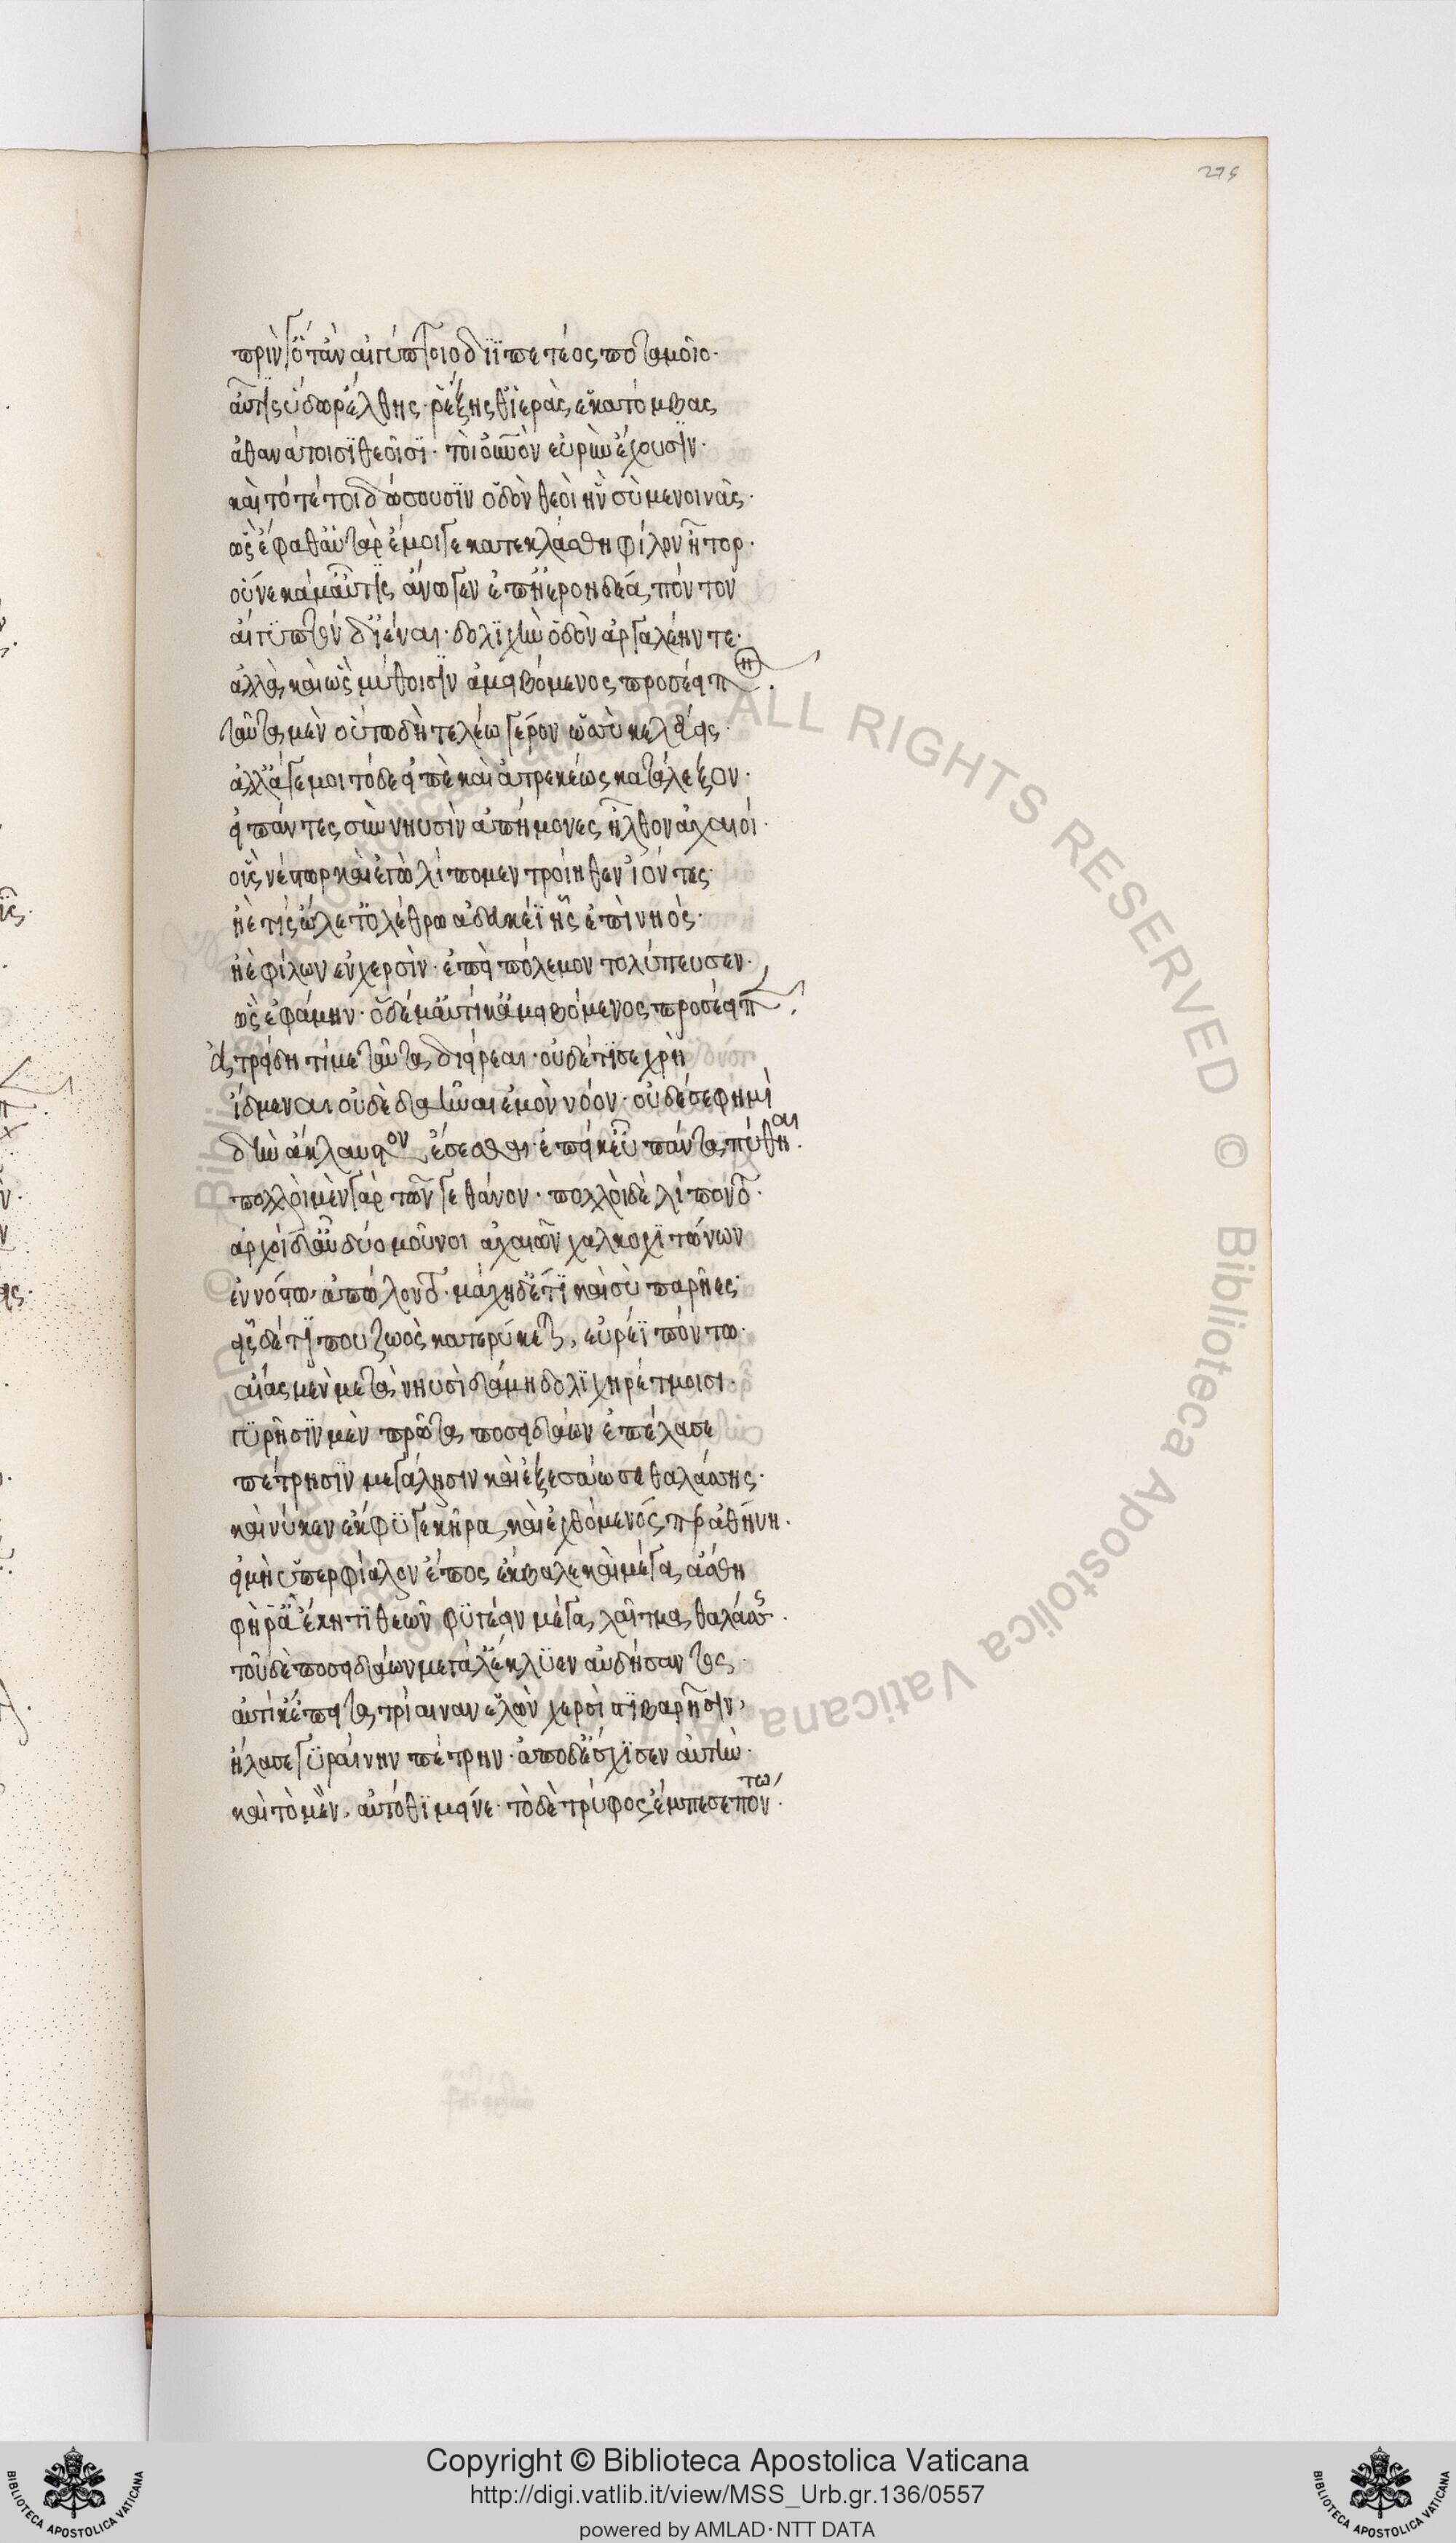 275
πρὶν γ' ὅτ' ἂν αἰγύπτοιο διϊπετέος ποταμοῖο·
αὖτις ὕδωρ ἔλθης· ῥέξης θ' ἱερὰς ἑκατόμβας
ἀθανάτοισι θεοῖσι· τοὶ οὐρανὸν εὐρὺν ἔχουσιν·
καὶ τότέ τοι δώσουσιν ὁδὸν θεοὶ ἣν σὺ μενοινᾶς·
ὣς ἔφατ' αὐτὰρ ἔμοιγε κατεκλάσθη φίλον ἦτορ·
οὕνεκά μ' αὖτις ἄνωγεν ἐπ' ἠεροηδέα πόντον
αἴγυπτον δ' ἰέναι· δολιχὴν ὁδὸν ἀργαλέην τε·
ἀλλὰ καὶ ὣς μύθοισιν ἀμειβόμενος προσέειπ
ταῦτα μὲν οὕτω δὴ τελέω γέρον ὡς σὺ κελεύεις·
ἀλλ' ἄγε μοι τόδε εἰπὲ καὶ ἀτρεκέως κατάλεξον·
εἰ πάντες σὺν νηυσὶν ἀπήμονες ἦλθον ἀχαιοί·
οὓς νέστωρ καὶ ἐγὼ λίπομεν τροίηθεν ἰόντες·
ἠέ τις ὤλετ' ὀλέθρω ἀδευκέϊ ἧς ἐπὶ νηός·
ἠὲ φίλων ἐν χερσὶν· ἐπεὶ πόλεμον τολύπευσεν·
ὣς ἐφάμην· ὁ δέ μ' αὐτίκ' ἀμειβόμενος προσέειπ
ἀτρείδη τί με ταῦτα διείρεαι· οὐδέ τί σε χρὴ
ἴδμεναι οὐδὲ δαῆναι ἐμὸν νόον· οὐδέ σε φημὶ
δὴν ἄκλαυτον ἔσεσθαι ἐπεί κ' εὖ πάντα πύθηαι·
πολλοὶ μὲν γὰρ τῶν γε θάνον· πολλοὶ δὲ λίποντο·
ἀρχοὶ δ' αὖ δύο μοῦνοι ἀχαιῶν χαλκοχιτώνων
ἐν νόστω ἀπώλοντο· μάχη δέ τι καὶ σὺ παρῆες·
εἷς δέ τι που ζωὸς κατερύκεται εὐρέϊ πόντω·
αἴας μὲν μετὰ νηυσὶ δάμη δολιχηρέτμοισι·
γυρῆσιν μὲν πρῶτα ποσειδάων ἐπέλασε
πέτρησιν μεγάλησιν καὶ ἐξεσάωσε θαλάσσης·
καὶ νύ κεν ἔκφυγε κῆρα καὶ ἐχθόμενός περ ἀθήνη·
εἰ μὴ ὑπερφίαλον ἔπος ἔκβαλε καὶ μέγ' ἀάσθη
φῆ ῥ' ἀέκητι θεῶν φυγέειν μέγα λαῖτμα θαλάσσης·
τοῦ δὲ ποσειδάων μεγάλ' ἔκλυεν αὐδήσαντος
αὐτίκ' ἔπειτα τρίαιναν ἑλὼν χερσὶ στιβαρῆσιν,
ἤλασε γυραίην πέτρην· ἀπὸ δ' ἔσχισεν αὐτήν·
καὶ τὸ μὲν αὐτόθι μεῖνε· τὸ δὲ τρύφος ἔμπεσε πόντω·
© Biblioteca Apostolica Vaticana ALL RIGHTS RESERVED © Biblioteca Apostolica Vaticana ALL RIGHTS RESERVED
Copyright © Biblioteca Apostolica Vaticana
http://digi.vatlib.it/view/MSS_Urb.gr.136/0557
powered by AMLAD·NTT DATA
BIBLIOTECA APOSTOLICA VATICANA
BIBLIOTECA APOSTOLICA VATICANA